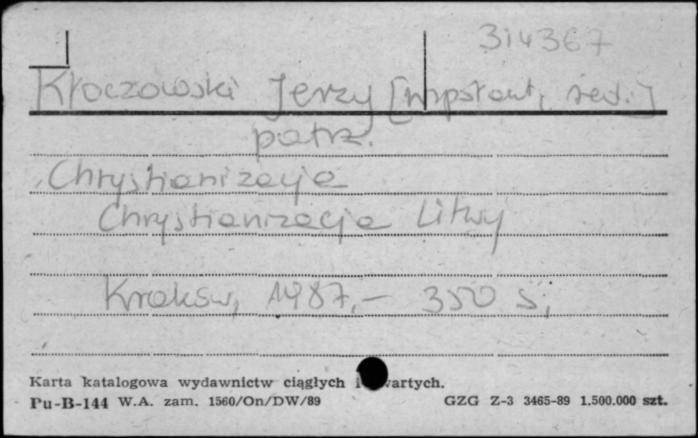 314367
Kłoczowski Jerzy [współaut., red.]
patrz.
Chrystianizacja
Chrystianizacja Litwy
Kraków, 1987.— 350 s.
Karta katalogowa wydawnictw ciągłych i wartych.
Pu-B-144 W.A. zam. 1560/On/DW/89 GZG Z-3 3465-89 1.500.000 szt.